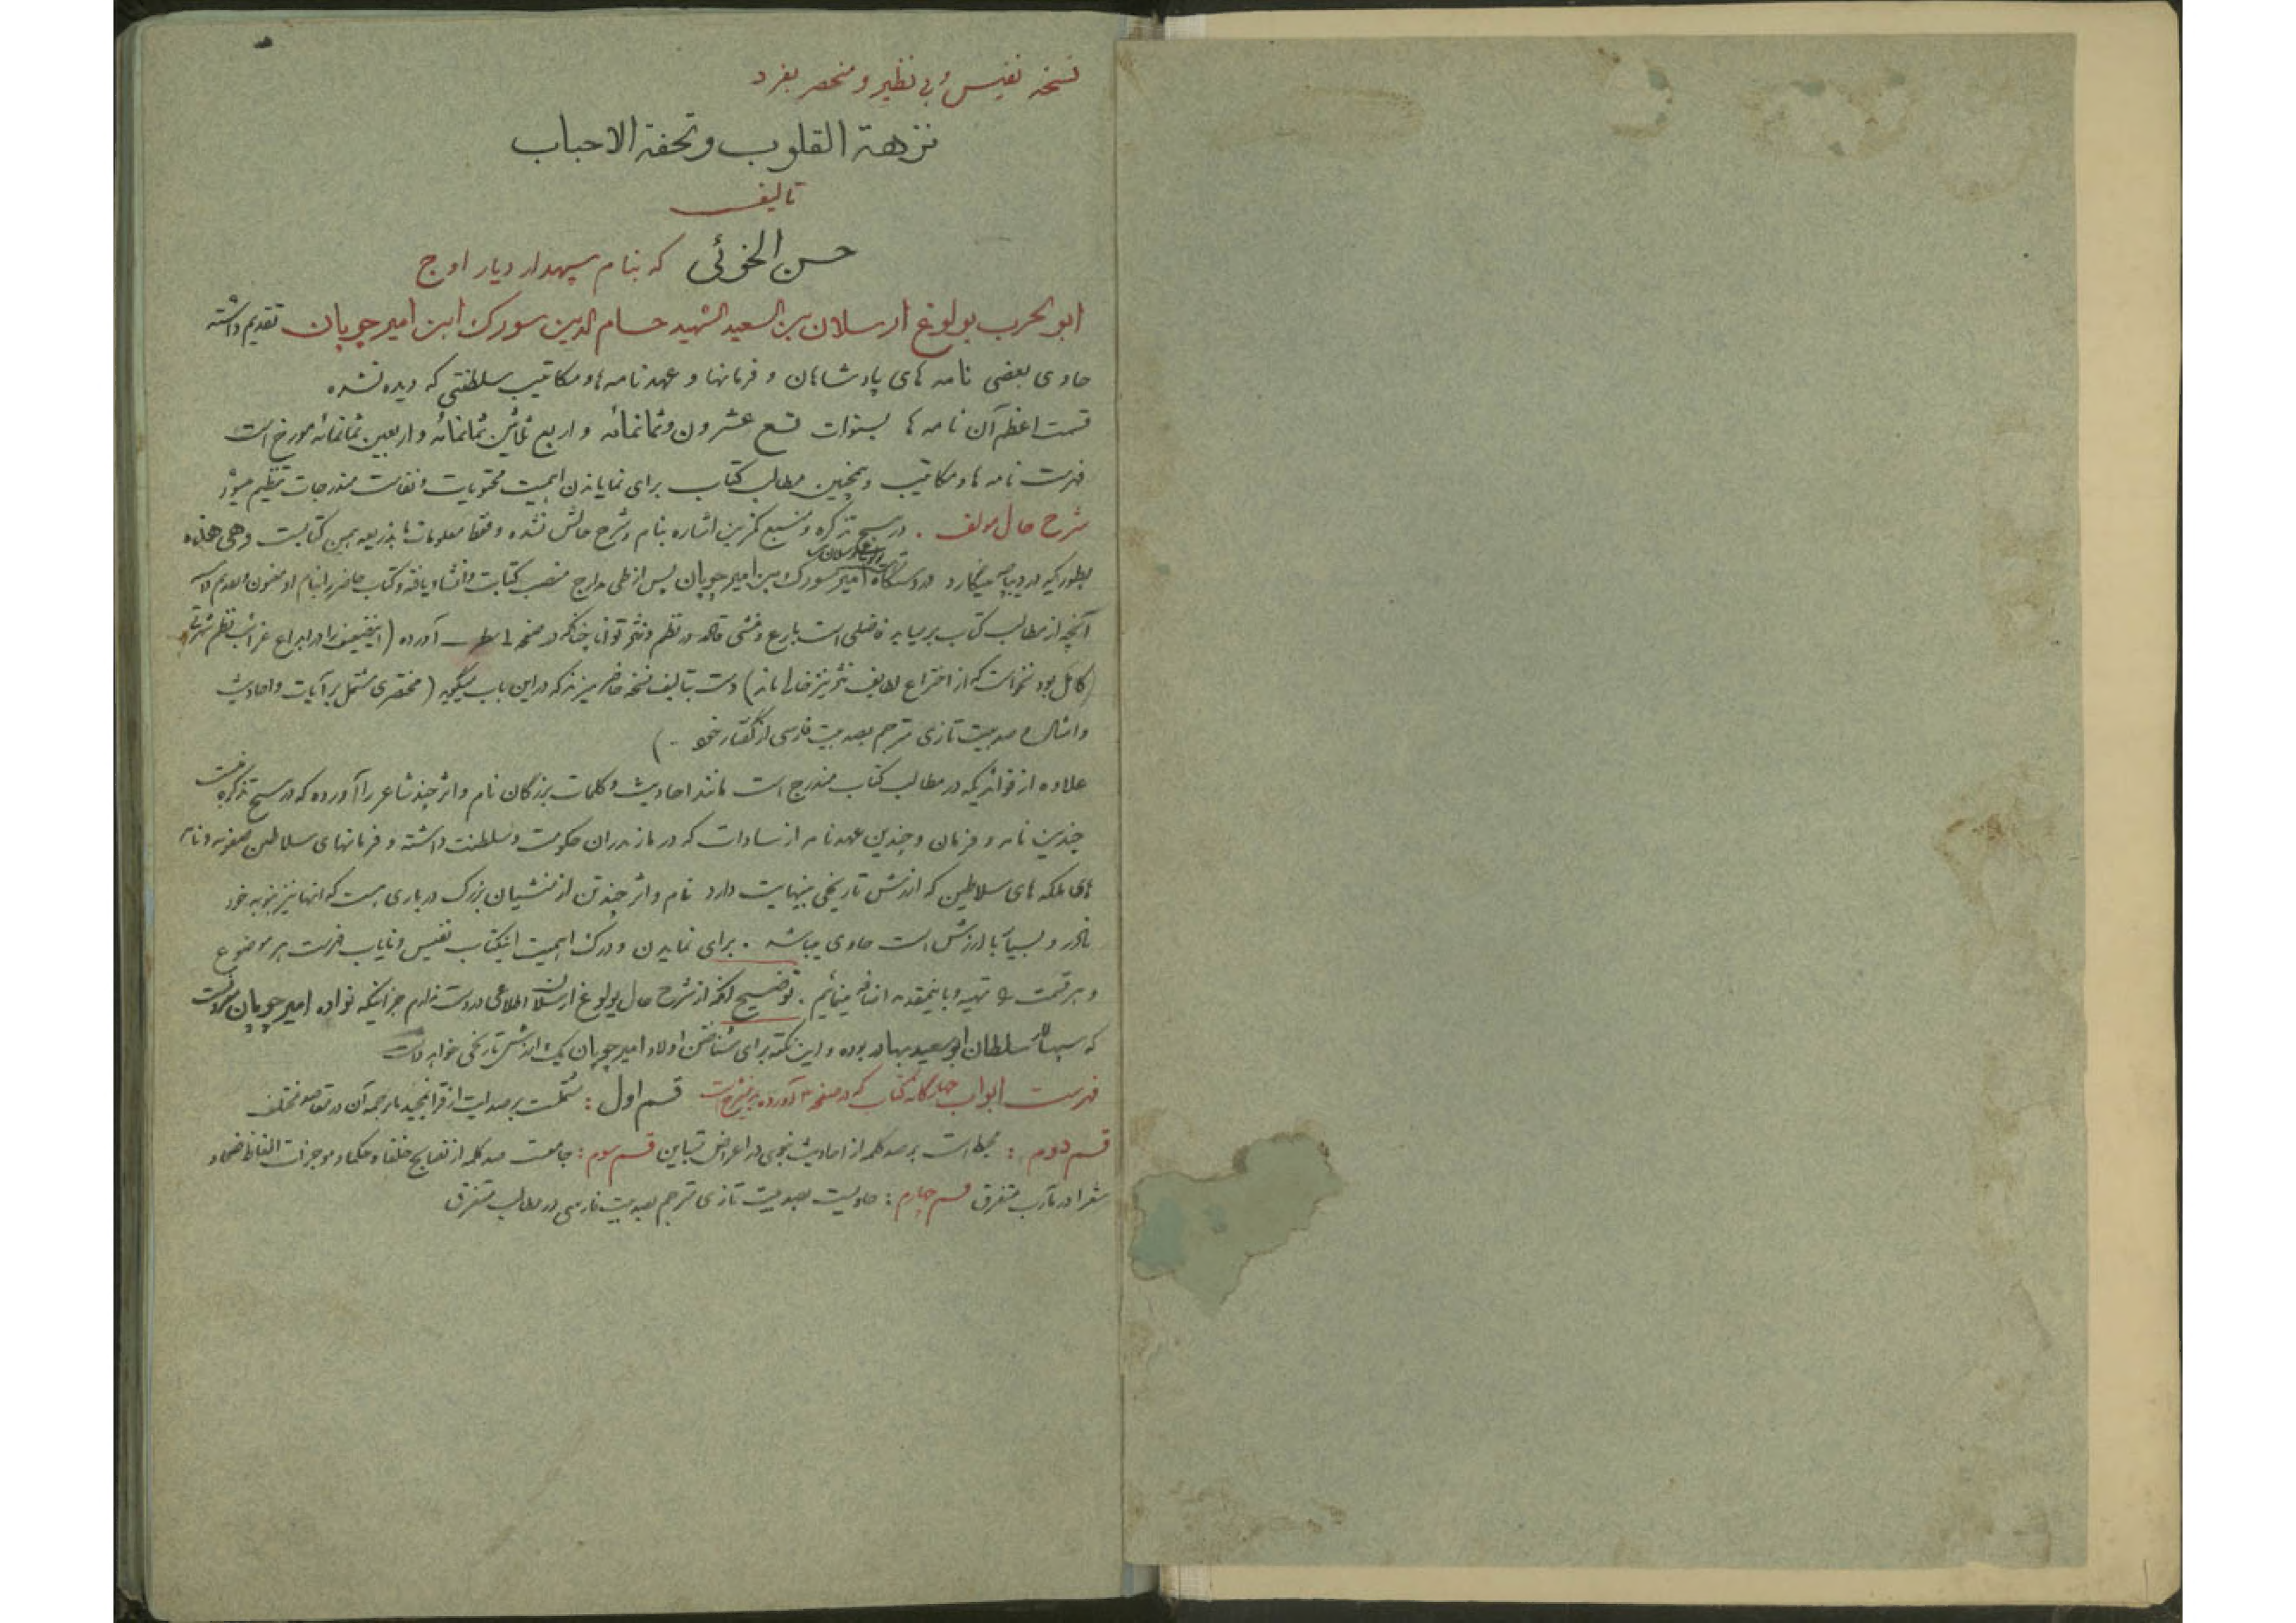 نسخه نفیس و بی نظیر و منحصر بفرد
نزهة القلوب و تحفة الاحباب
تالیف
حسن الخوئی که بنام سپهدار دیار اوج
ابو الحرب یولوغ ارسلان بن السعید الشهید حسام الدین سورک ابن امیر چوپان تقدیم داشته
حاوی بعضی نامه های پادشاهان و فرمانها و عهد نامه ها و مکاتیب سلطنتی که دیده نشده
قسمت اعظم آن نامه ها بسنوات تسع عشرون و ثمانمائه و اربع ثلاثین ثمانمائه و اربعین ثمانمائه مورخ است
فهرست نامه ها و مکاتیب و همچنین مطالب کتاب برای نمایاندن اهمیت محتویات و نفاست مندرجات تنظیم میشود
شرح حال مولف . در هیچ تذکره و منبع کمترین اشاره بنام و شرح حالش نشده و فقط معلومات ما بذریعه همین کتابست و هی هذه
بطوریکه در دیباچه مینگارد در دستگاه امیر سورک ابن امیر چوپان پس از طی مدارج منصب کتابت و انشاء یافته و کتاب حاضر را بنام او معنون
آنچه از مطالب کتاب برمیاید فاضلی است بارع و منشی قادر در نظم و نثر توانا چنانکه در صفحه ۱ سطر آورده (اینضعیف را در ابداع غرائب نظم شهرتی
کامل بود نخواست که از اختراع لطایف نثر نیز خالی ماند) دست بتالیف نسخه حاضر میزند که در این باب میگوید (مختصری مشتمل بر آیات و احادیث
و امثال و صد بیت تازی مترجم بصد بیت فارسی از گفتار خود ..)
علاوه از فوائدیکه در مطالب کتاب مندرج است مانند احادیث و کلمات بزرگان نام و اثر چند شاعر را آورده که در هیچ تذکره نیست
چندین نامه و فرمان و چندین عهدنامه از سادات که در مازندران حکومت و سلطنت داشته و فرمانهای سلاطین صفویه و نامه
های ملکه های سلاطین که ارزش تاریخی بینهایت دارد نام و اثر چند تن از منشیان بزرگ درباری هست که آنها نیز بنوبه خود
نادر و بسیار با ارزش است حاوی میباشد . برای نمایدن و درک اهمیت اینکتاب نفیس و نایاب فهرست هر موضوع
و هر قسمت را تهیه و باینمقدمه اضافه مینمائیم . توضیح آنکه از شرح حال یولوغ ارسلان اطلاعی در دست ندارم جز اینکه نواده امیر چوپان معروفست
که سپهسالار سلطان ابوسعید بهادر بوده و این نکته برای شناختن اولاد امیر چوپان یک ارزش تاریخی خواهد داشت
فهرست ابواب چهارگانه کتاب که در صفحه ۳ آورده بدینشرح است قسم اول : مشتملست بر صد آیت از قرآنمجید با ترجمه آن در مقاصد مختلف
قسم دوم : محیط است بر صد کلمه از احادیث نبوی در اعراض متباین قسم سوم : جامعست صد کلمه از نصایح خلفا و حکما و موجزات الفاظ فصحا و
شعرا در مآرب متفرق قسم چهارم : حاویست بصد بیت تازی مترجم بصد بیت فارسی در مطالب متفرق